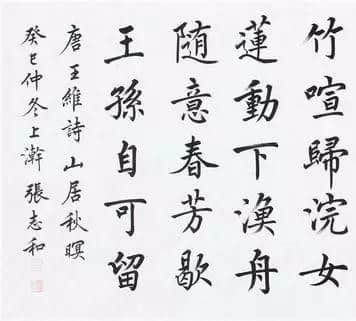 竹喧歸浣女
蓮動下漁舟
随意春芳歇
王孫自可留
唐王維詩山居秋暝
癸巳仲冬上澣張志和